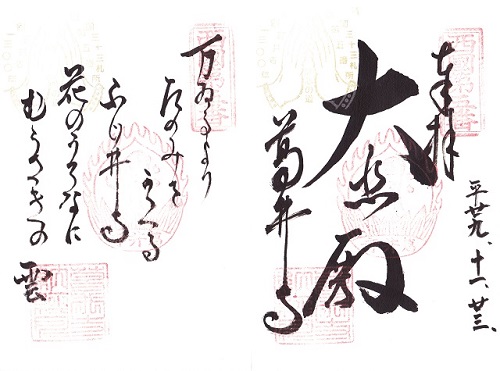 奉拝
平廿九、十一、廿三、
大悲殿
葛井寺
万ゐるより
たのみを
かくる
ふじ井寺
花のうてなに
むらさきの
雲